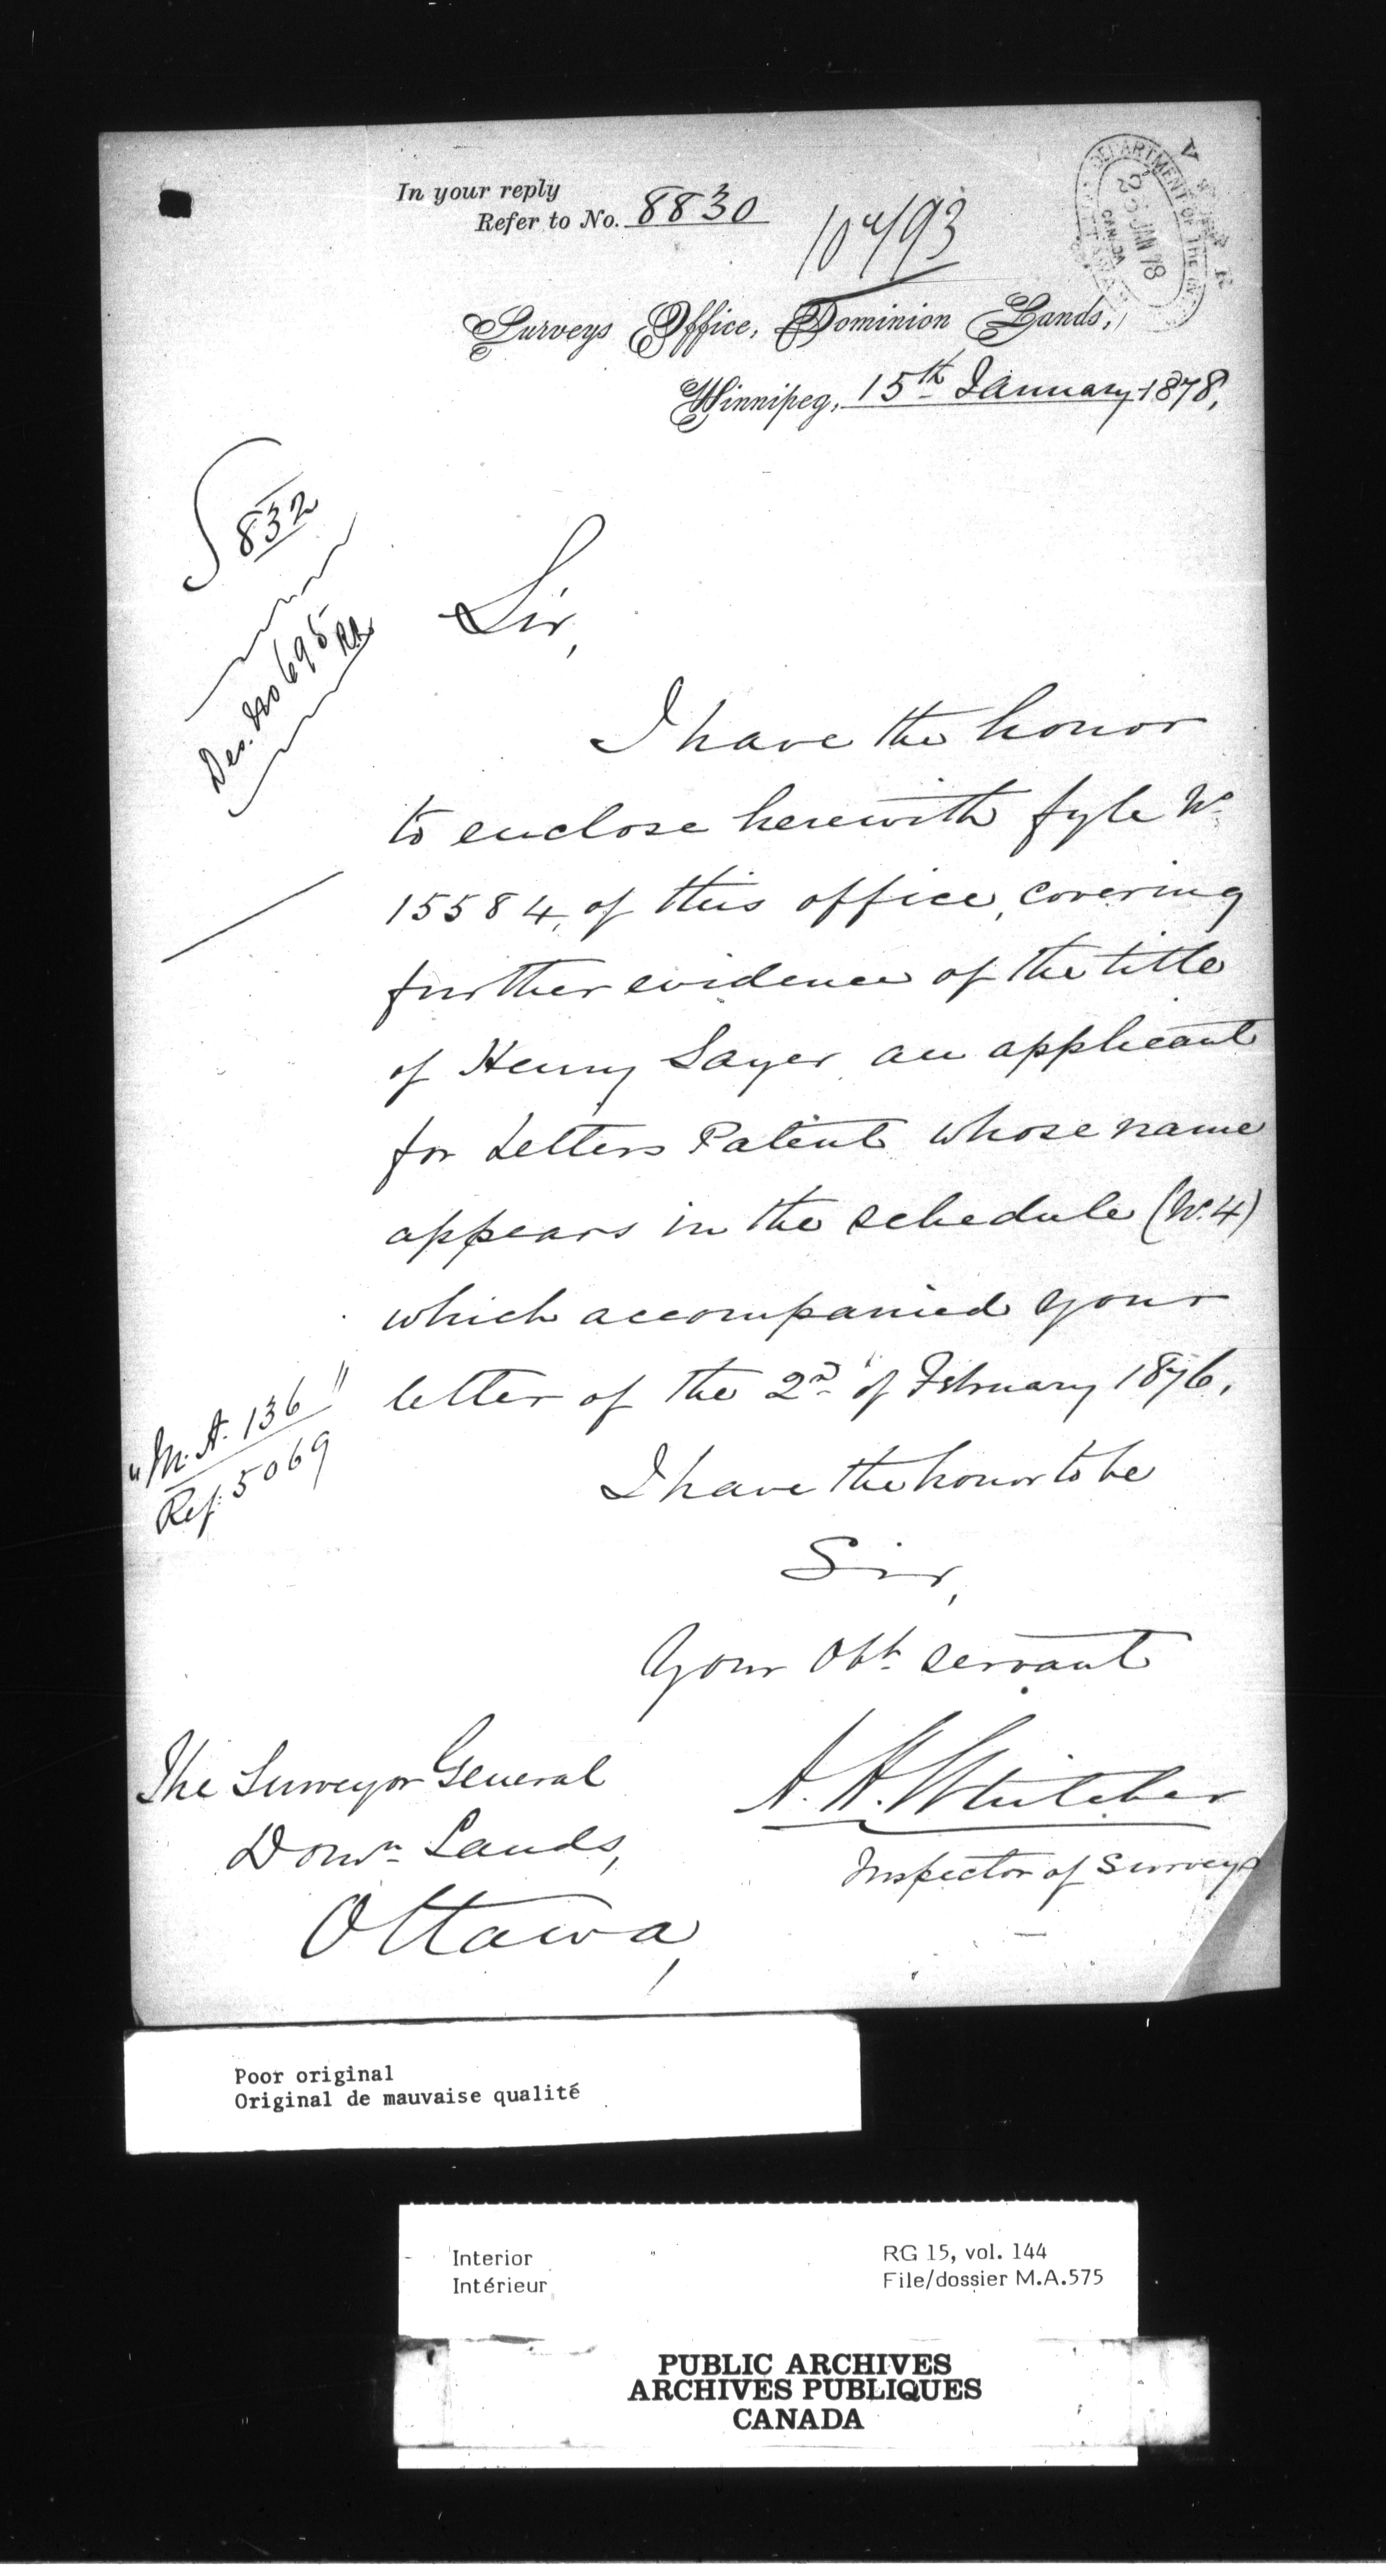 In your reply
Refer to No. 8830
10493
DEPARTMENT OF THE IN
JAN 78
CANADA
OTTAWA
Surveys Office, Dominion Lands,
Winnipeg, 15th January 1878,
832
Des. No 695
Sir,
I have the honor
to enclose herewith fyle No
15584, of this office, covering
further evidence of the title
of Henry Sayer an applicant
for Letters Patent whose name
appears in the schedule (No. 4)
which accompanied your
letter of the 2nd of February 1876.
"M. A. 136"
Ref: 5069
I have the honor to be
Sir,
Your Obt. servant
A. H. Whitcher
Inspector of Surveys
The Surveyor General
Domn. Lands,
Ottawa,
Poor original
Original de mauvaise qualité
Interior
Intérieur
RG 15, vol. 144
File/dossier M.A.575
PUBLIC ARCHIVES
ARCHIVES PUBLIQUES
CANADA